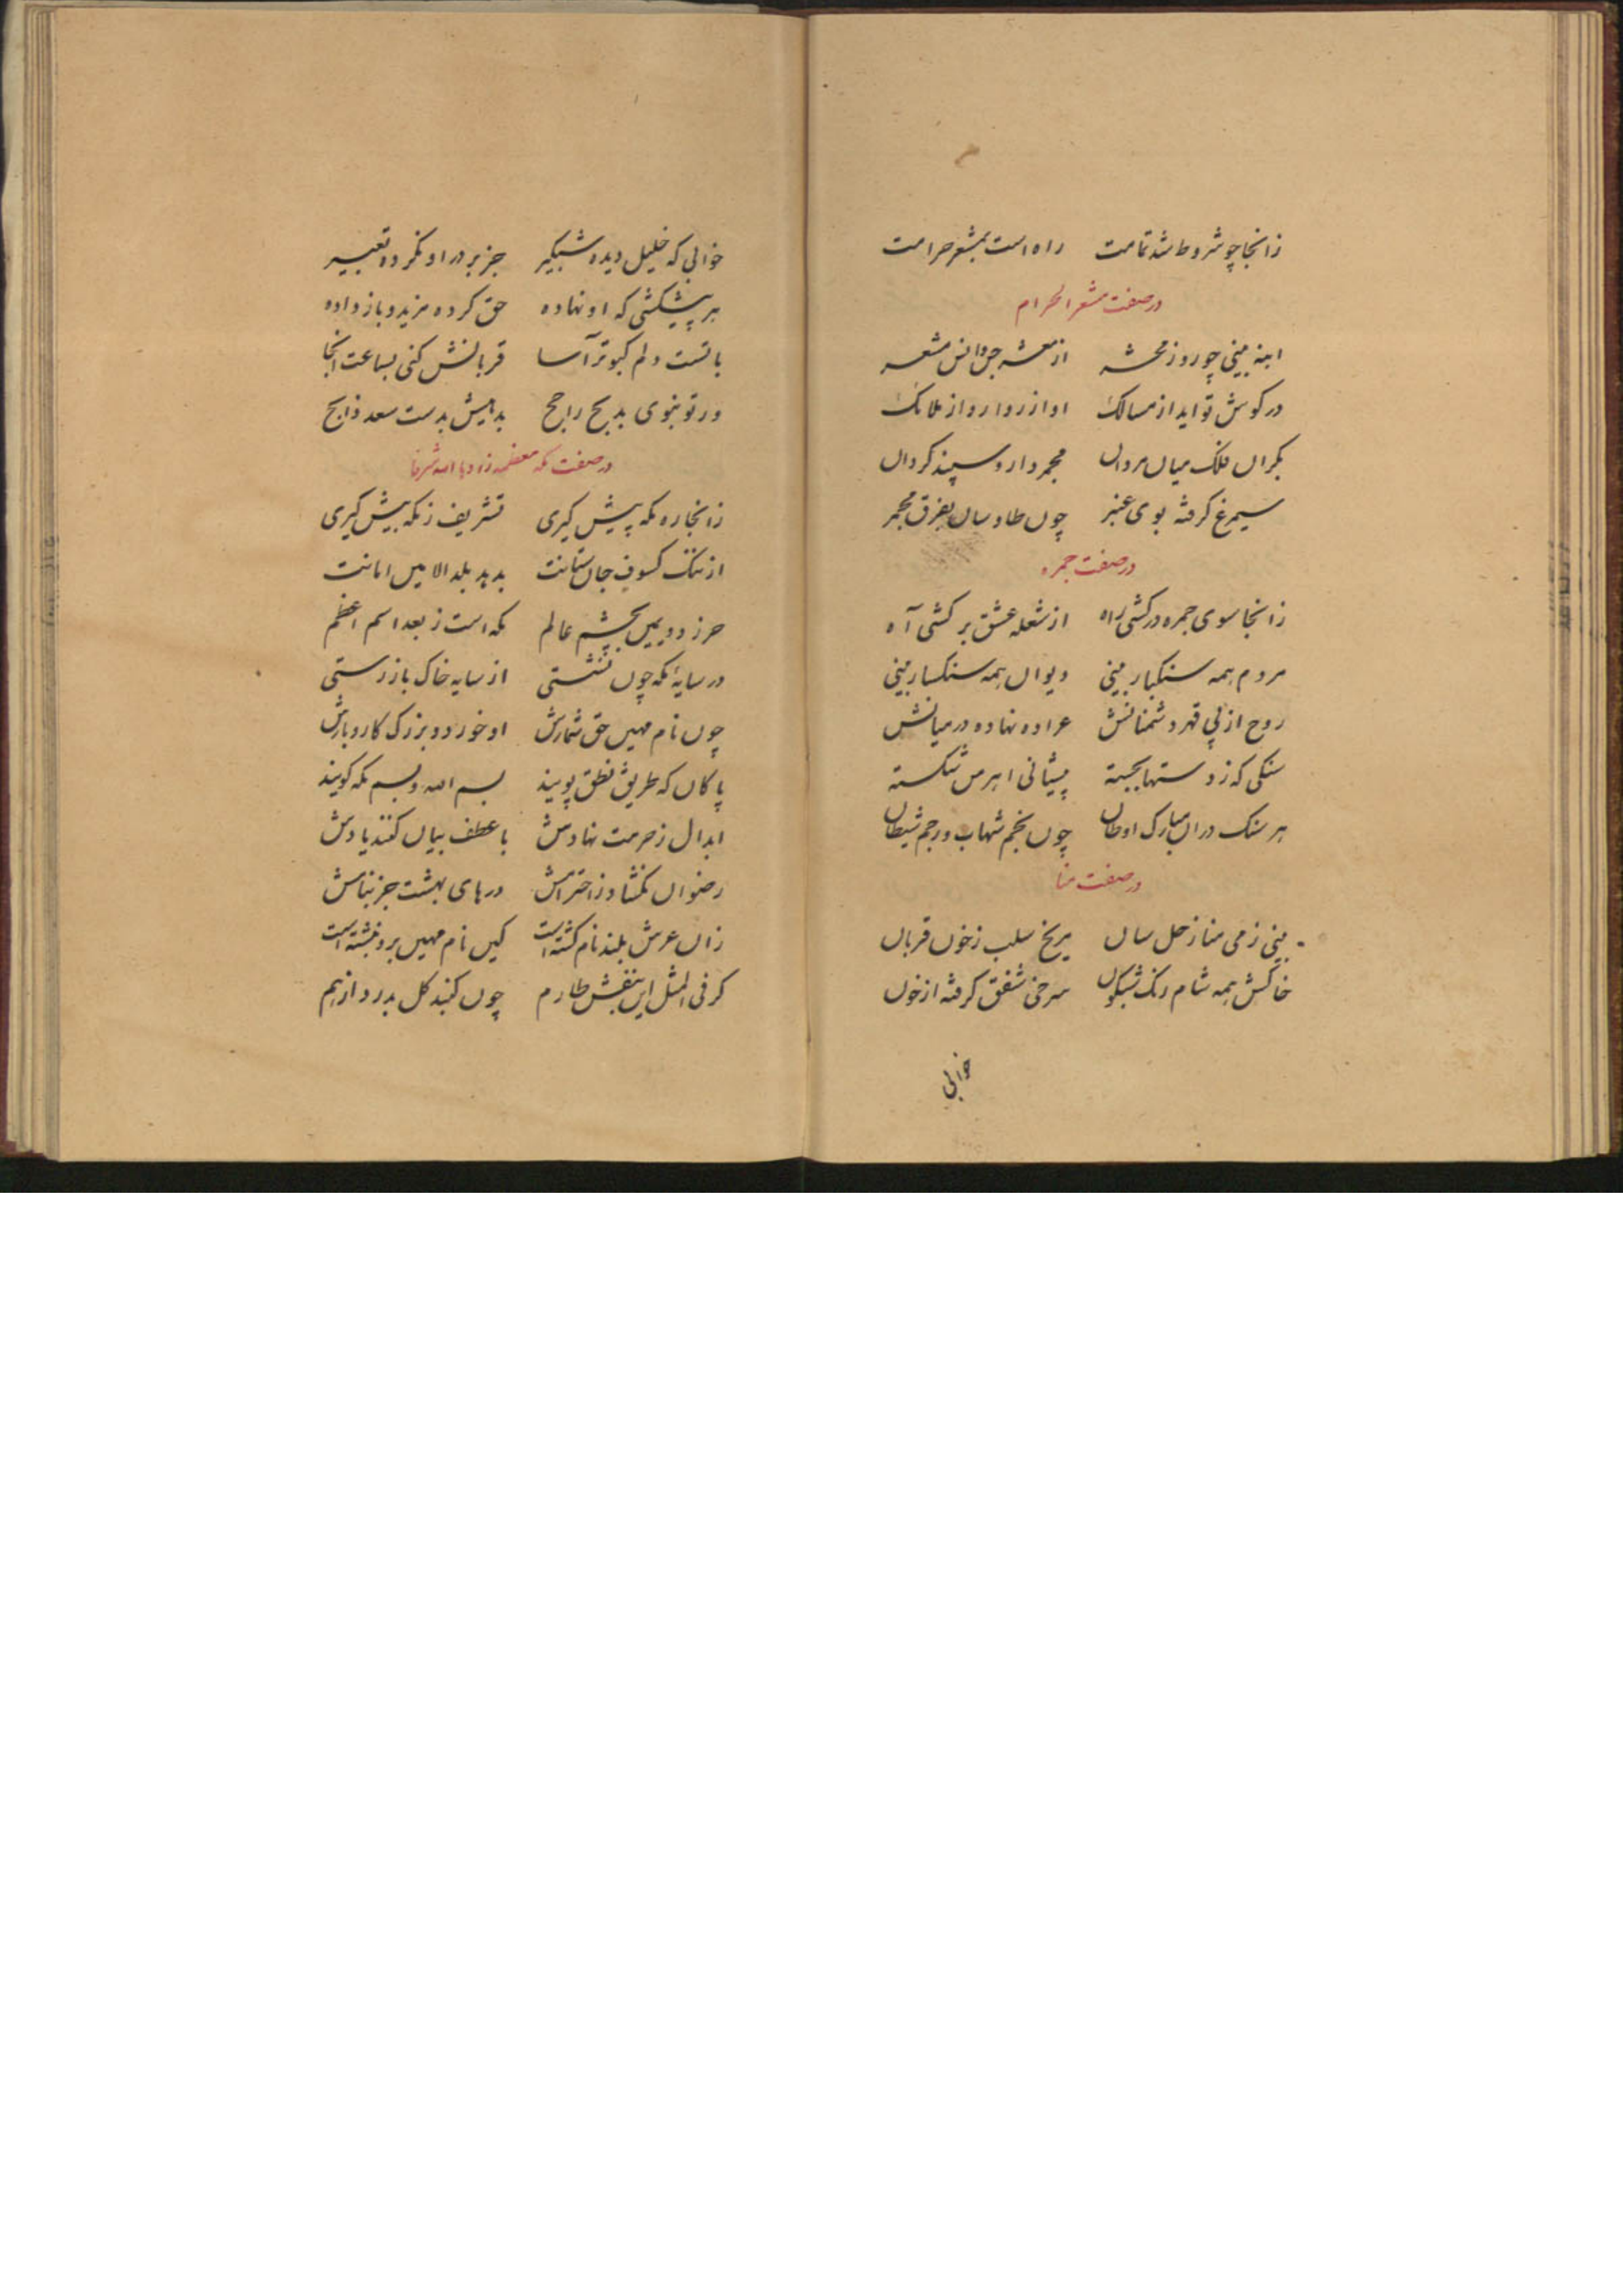 زانجا چو شروط شد تمامت راه است بمشعر حرامت
در صفت مشعر الحرام
انبه بینی چو روز محشر از معشر جن و انس مشعر
در کوش تو اید از مسالک اواز روارو از ملائک
بکران فلک میان مردان مجمر دار و سپند کردان
سیمرغ کرفته بوی عنبر چون طاوسان بفرق مجمر
در صفت جمره
زانجا سوی جمره درکشی راه از شعله عشق برکشی آه
مردم همه سنکبار بینی دیوان همه سنکسار بینی
روح از پی قهر دشمنانش عراده نهاده در میانش
سنکی که ز دستها بجسته پیشانی اهرمن شکسته
هر سنک دران مبارک اوطان چون نجم شهاب و رجم شیطان
در صفت منا
بینی زمی منا زحل سان مریخ سلب ز خون قربان
خاکش همه شام رنک شبکون سرخی شفق کرفته از خون
خوابی
خوابی که خلیل دیده شبکیر جز بر در او نکرده تعبیر
هر پیشکشی که او نهاده حق کرده مزید و باز داده
با تست دلم کبوتر آسا قربانش کنی بساعت انجا
ور تو بنوی بدبح راجح بدهیش بدست سعد ذابح
در صفت مکه معظمه زادها الله شرفا
زانجا ره مکه پیش کیری تشریف ز مکه بیش کیری
از ننک کسوف جان ستانت بدهد بلد الامین امانت
حرز دویمین بچشم عالم مکه است ز بعد اسم اعظم
در سایهٔ مکه چون نشستی از سایه خاک باز رستی
چون نام مهین حق شمارش او خورد و بزرک کار و بارش
پاکان که طریق نطق پویند بسم الله و بسم مکه کویند
ابدال ز حرمت نهادش با عطف بیان کنند یادش
رضوان نکشاد ز احترامش درهای بهشت جز بنامش
زان عرش بلند نام کشته است کین نام مهین برو نبشته است
کر فی المثل این بنفش طارم چون کنبد کل بدرد از هم